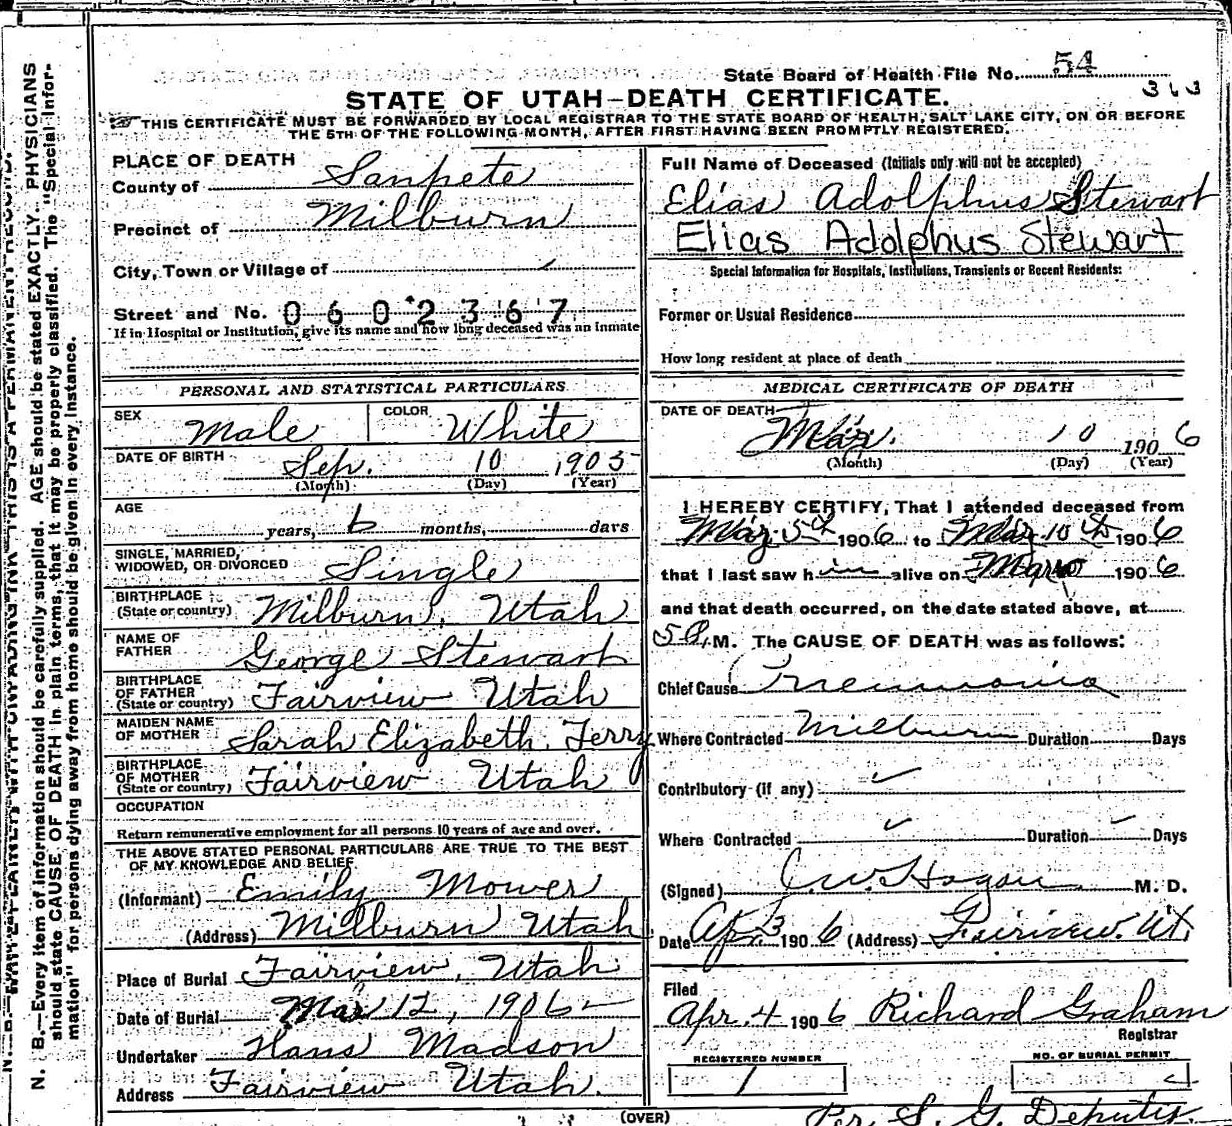 State Board of Health File No. 54
363
STATE OF UTAH—DEATH CERTIFICATE.
THIS CERTIFICATE MUST BE FORWARDED BY LOCAL REGISTRAR TO THE STATE BOARD OF HEALTH, SALT LAKE CITY, ON OR BEFORE
THE 5TH OF THE FOLLOWING MONTH, AFTER FIRST HAVING BEEN PROMPTLY REGISTERED.
N. B.—Every item of information should be carefully supplied. AGE should be stated EXACTLY. PHYSICIANS
should state CAUSE OF DEATH in plain terms, that it may be properly classified. The "Special Infor-
mation" for persons dying away from home should be given in every instance.
PLACE OF DEATH
County of Sanpete
Precinct of Milburn
City, Town or Village of
Street and No. 0602367
If in Hospital or Institution, give its name and how long deceased was an inmate
PERSONAL AND STATISTICAL PARTICULARS
SEX Male COLOR White
DATE OF BIRTH Sep. 10 1905
(Month) (Day) (Year)
AGE
years, 6 months, days
SINGLE, MARRIED,
WIDOWED, OR DIVORCED Single
BIRTHPLACE
(State or country) Milburn, Utah
NAME OF
FATHER George Stewart
BIRTHPLACE
OF FATHER
(State or country) Fairview Utah
MAIDEN NAME
OF MOTHER Sarah Elizabeth Terry
BIRTHPLACE
OF MOTHER
(State or country) Fairview Utah
OCCUPATION
Return remunerative employment for all persons 10 years of age and over.
THE ABOVE STATED PERSONAL PARTICULARS ARE TRUE TO THE BEST
OF MY KNOWLEDGE AND BELIEF
(Informant) Emily Mower
(Address) Milburn Utah
Place of Burial Fairview, Utah
Date of Burial Mar 12, 1906
Undertaker Hans Madson
Address Fairview Utah.
Full Name of Deceased (Initials only will not be accepted)
Elias Adolphus Stewart
Elias Adolphus Stewart
Special Information for Hospitals, Institutions, Transients or Recent Residents:
Former or Usual Residence
How long resident at place of death
MEDICAL CERTIFICATE OF DEATH
DATE OF DEATH
Mar. 10 1906
(Month) (Day) (Year)
I HEREBY CERTIFY, That I attended deceased from
Mar 5th 1906 to Mar 10th 1906
that I last saw him alive on Mar 10 1906
and that death occurred, on the date stated above, at
5 P.M. The CAUSE OF DEATH was as follows:
Chief Cause Pneumonia
Where Contracted Milburn Duration Days
Contributory (if any)
Where Contracted Duration Days
(Signed) J. W. Hagan M. D.
Date Apr. 3 1906 (Address) Fairview. Ut.
Filed
Apr. 4 1906 Richard Graham
Registrar
REGISTERED NUMBER
1
NO. OF BURIAL PERMIT
(OVER)
Per S. G. Deputy.